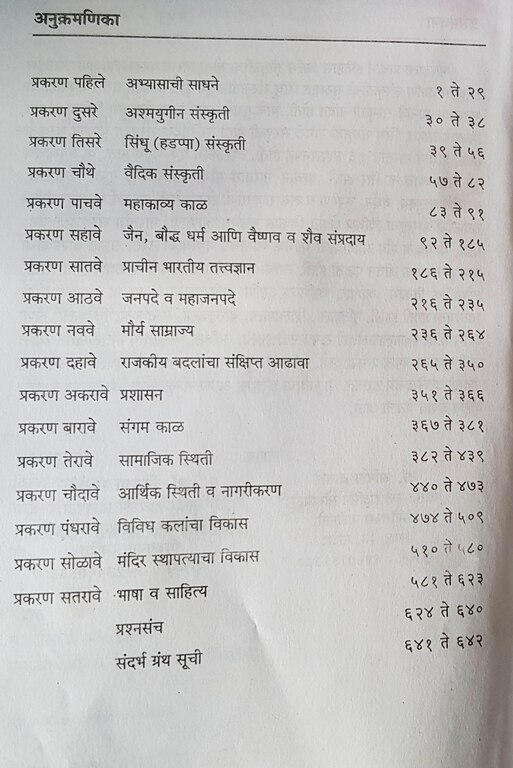 अनुक्रमणिका
प्रकरण पहिले अभ्यासाची साधने १ ते २९
प्रकरण दुसरे अश्मयुगीन संस्कृती ३० ते ३८
प्रकरण तिसरे सिंधू (हडप्पा) संस्कृती ३९ ते ५६
प्रकरण चौथे वैदिक संस्कृती ५७ ते ८२
प्रकरण पाचवे महाकाव्य काळ ८३ ते ९१
प्रकरण सहावे जैन, बौद्ध धर्म आणि वैष्णव व शैव संप्रदाय ९२ ते १८५
प्रकरण सातवे प्राचीन भारतीय तत्त्वज्ञान १८६ ते २१५
प्रकरण आठवे जनपदे व महाजनपदे २१६ ते २३५
प्रकरण नववे मौर्य साम्राज्य २३६ ते २६४
प्रकरण दहावे राजकीय बदलांचा संक्षिप्त आढावा २६५ ते ३५०
प्रकरण अकरावे प्रशासन ३५१ ते ३६६
प्रकरण बारावे संगम काळ ३६७ ते ३८१
प्रकरण तेरावे सामाजिक स्थिती ३८२ ते ४३९
प्रकरण चौदावे आर्थिक स्थिती व नागरीकरण ४४० ते ४७३
प्रकरण पंधरावे विविध कलांचा विकास ४७४ ते ५०९
प्रकरण सोळावे मंदिर स्थापत्याचा विकास ५१० ते ५८०
प्रकरण सतरावे भाषा व साहित्य ५८१ ते ६२३
प्रश्नसंच ६२४ ते ६४०
संदर्भ ग्रंथ सूची ६४१ ते ६४२